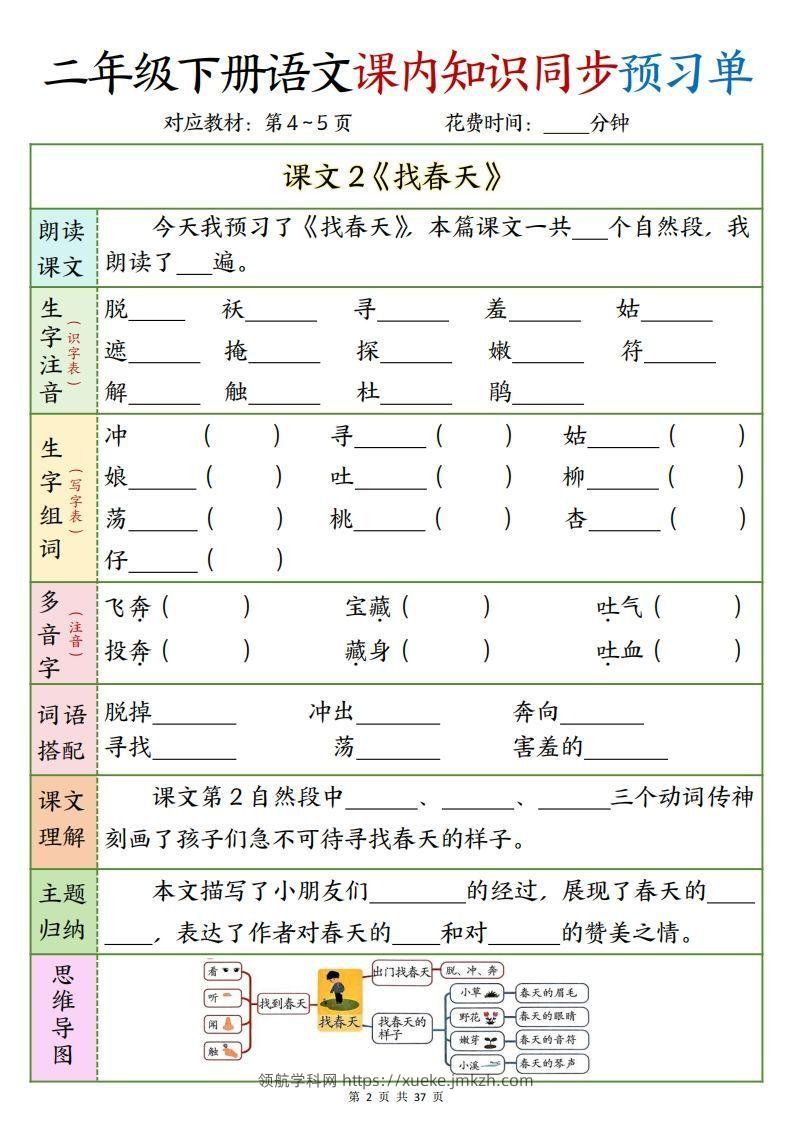 二年级下册语文课内知识同步预习单
对应教材：第4~5页 花费时间：____分钟
课文2《找春天》
朗读课文
今天我预习了《找春天》，本篇课文一共___个自然段，我
朗读了___遍。
生字注音（识字表）
脱_____ 袄______ 寻______ 羞______ 姑______
遮______ 掩______ 探______ 嫩______ 符______
解______ 触______ 杜______ 鹃______
生字组词（写字表）
冲 （ ） 寻______（ ） 姑______（ ）
娘______（ ） 吐______（ ） 柳______（ ）
荡______（ ） 桃______（ ） 杏______（ ）
仔______（ ）
多音字（注音）
飞奔（ ） 宝藏（ ） 吐气（ ）
投奔（ ） 藏身（ ） 吐血（ ）
词语搭配
脱掉_______ 冲出_______ 奔向_______
寻找_______ 荡_______ 害羞的_______
课文理解
课文第2自然段中______、______、______三个动词传神
刻画了孩子们急不可待寻找春天的样子。
主题归纳
本文描写了小朋友们________的经过，展现了春天的____
____，表达了作者对春天的____和对______的赞美之情。
思维导图
看
听
闻
触
找到春天
找春天
出门找春天
脱、冲、奔
找春天的
样子
小草 春天的眉毛
野花 春天的眼睛
嫩芽 春天的音符
小溪 春天的琴声
领航学科网 https://xueke.jmkzh.com
第 2 页 共 37 页